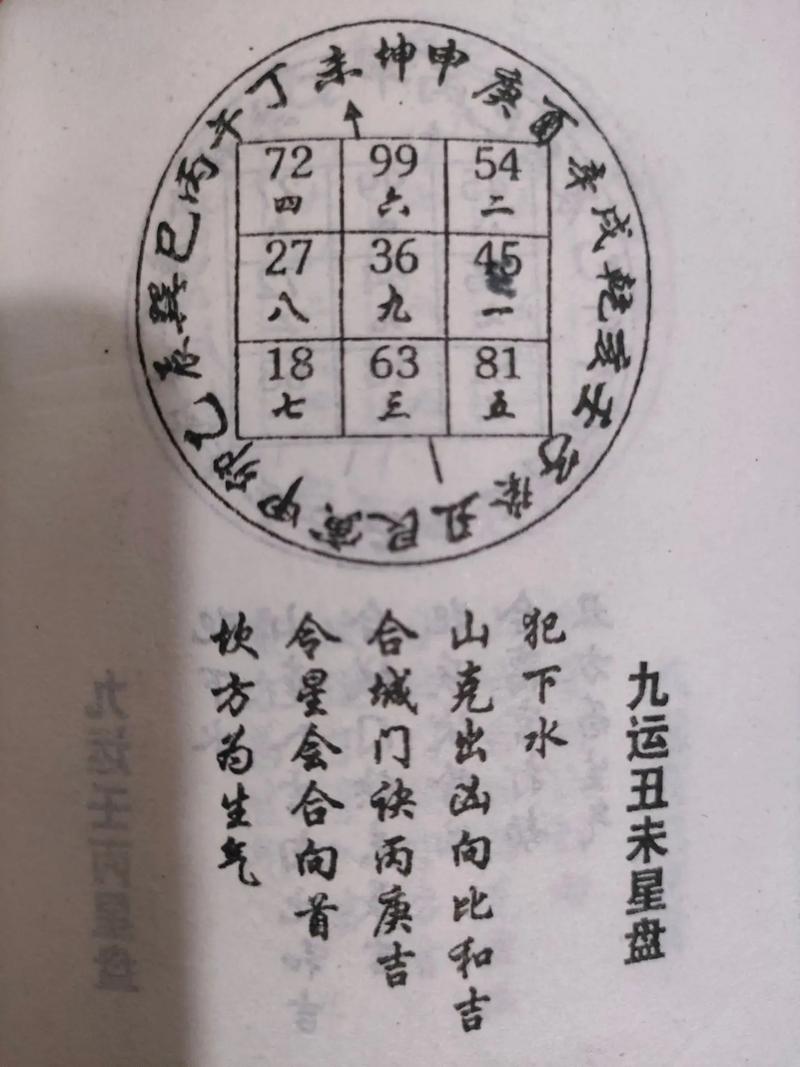 午丁未坤申庚酉辛戌乾亥壬子癸丑艮寅甲卯乙辰巽巳丙
72 99 54
四 六 二
27 36 45
八 九 一
18 63 81
七 三 五
九运丑未星盘
犯下水
山克出凶向比和吉
合城门诀丙庚吉
令星会合向首
坎方为生气